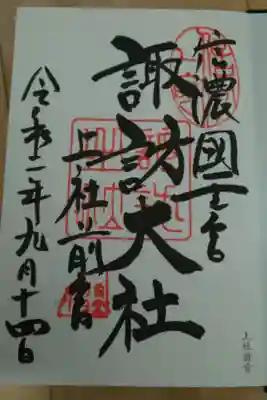 信濃國一之宮
諏訪大社
上社前宮
令和二年九月十四日
上社前宮